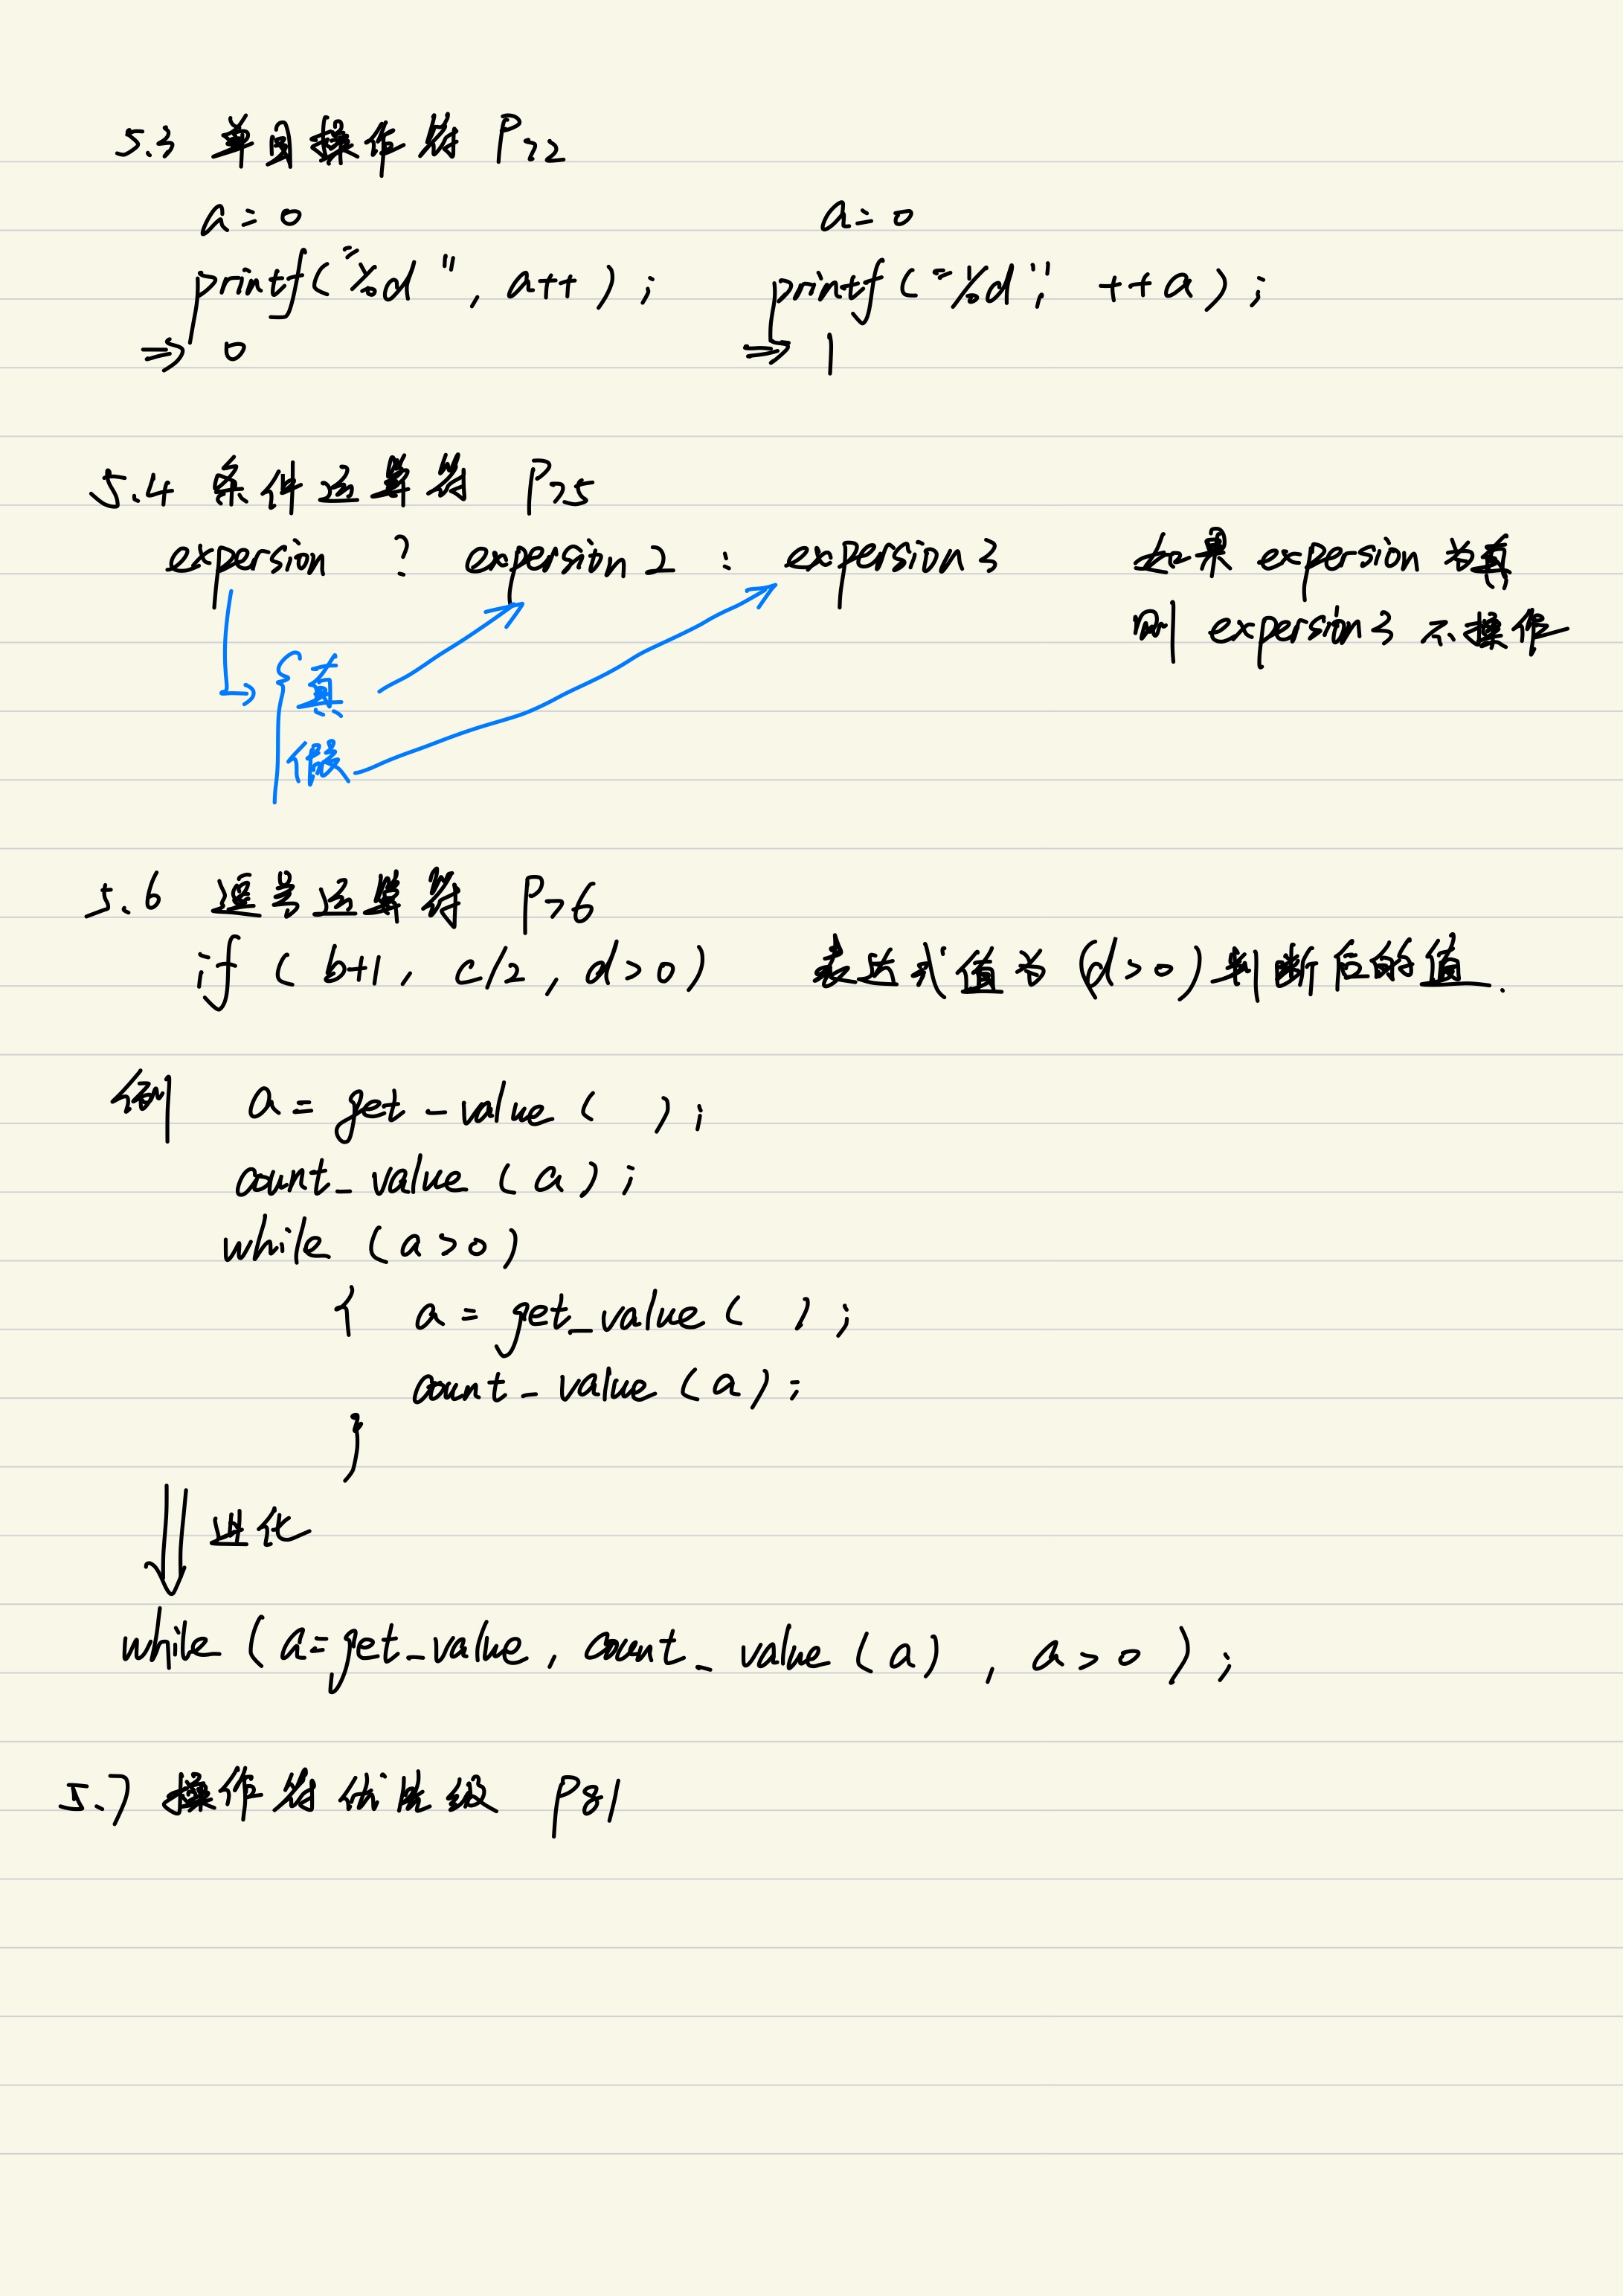 5.3 单目操作符 P72
a = 0 a = 0
printf("%d", a++); printf("%d", ++a);
⇒ 0 ⇒ 1
5.4 条件运算符 P75
expersion ? expersion2 : expersion3 如果 expersion 为真
则 expersion3 不操作
真
假
5.6 逗号运算符 P76
if ( b+1, c/2, d>0) 表达式值为 (d>0) 判断后的值.
例 a = get_value( );
count_value (a);
while (a>0)
{ a = get_value( );
count_value (a);
}
进化
while (a=get_value, count_value (a), a>0);
5.7 操作符优先级 P81